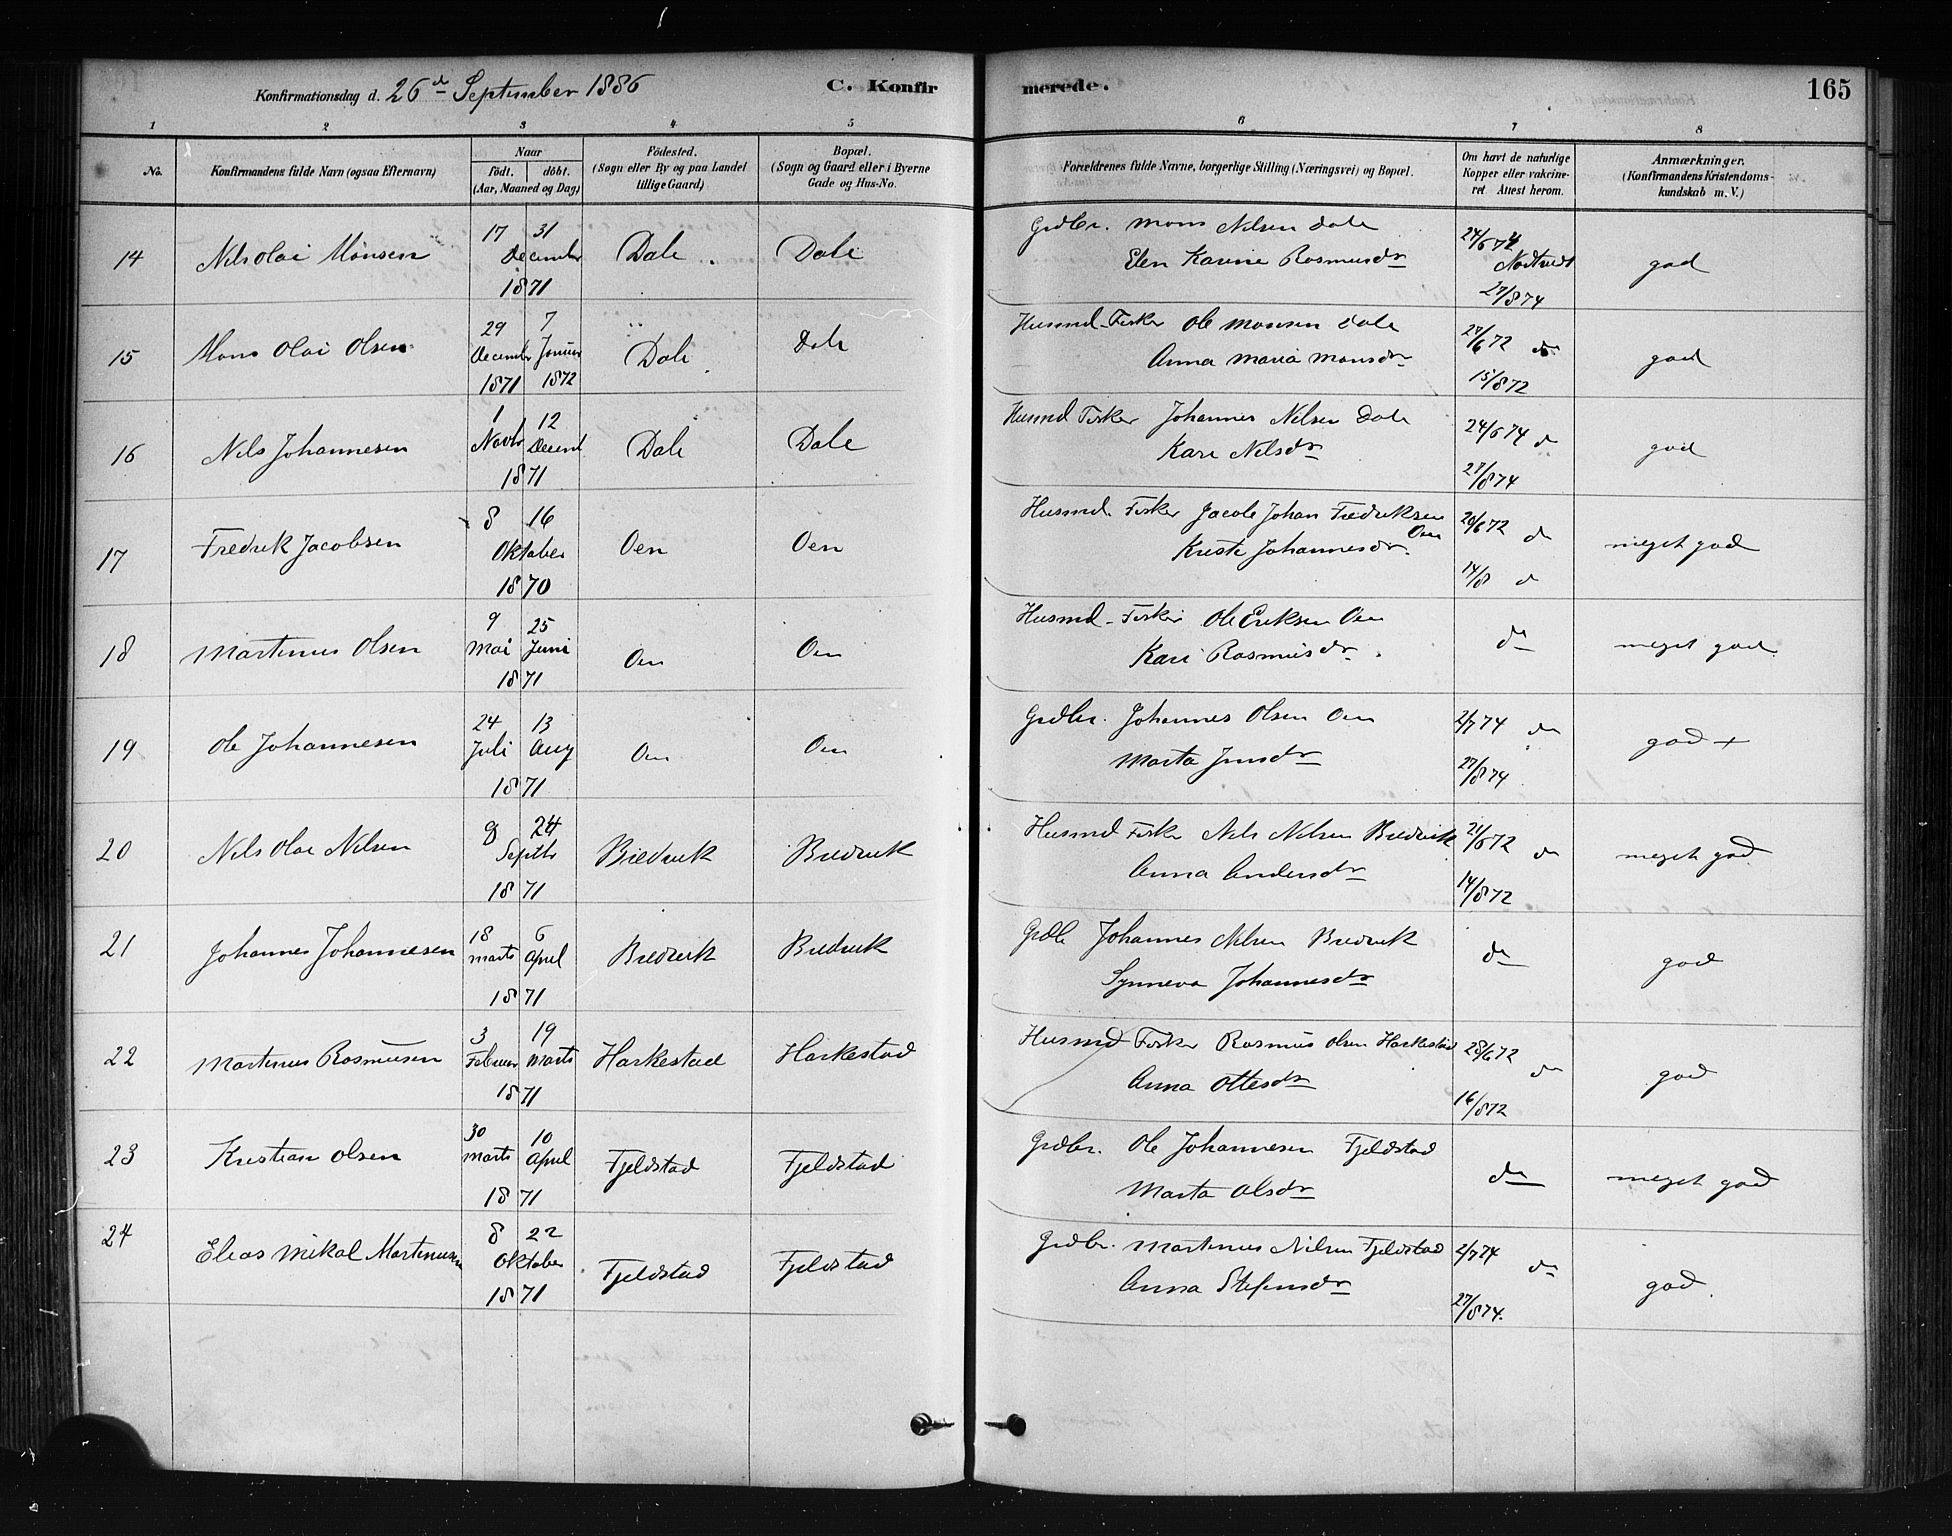 Konfirmationsdag d. 26de September 1886
C. Konfirmerede.
165
1 2 3 4 5 6 7 8
No.
Konfirmandens fulde Navn (ogsaa Efternavn)
Naar
født. døbt.
(Aar, Maaned og Dag)
Fødested.
(Sogn eller By og paa Landet
tillige Gaard)
Bopæl.
(Sogn og Gaard eller i Byerne
Gade og Hus-No.
Forældrenes fulde Navne, borgerlige Stilling (Næringsvei) og Bopæl.
Om havt de naturlige
Kopper eller vakcine-
ret Attest herom.
Anmærkninger.
(Konfirmandens Kristendoms-
kundskab m. V.)
14 Nils Olai Monsen 17 31 December 1871 Dale Dale Grdbr. Mons Nilsen Dale
Elen Karine Rasmusdr 24/6 74 27/8 74 god
15 Mons Olai Olsen 29 December 1871 7 Januar 1872 Dale Dale Husmd. Fisker Ole Monsen Dale
Anna Maria Monsdr 27/6 72 do 15/8 72 god
16 Nils Johannesen 1 Novbr 12 Decemb 1871 Dale Dale Husmd Fisker Johannes Nilsen Dale
Kari Nilsdr 24/6 74 do 27/8 74 god
17 Fredrik Jacobsen 8 16 Oktober 1870 Oen Oen Husmd. Fisker Jacob Johan Fredriksen Oen
Kriste Johannesdr. 20/6 72 do 14/8 do meget god
18 Martinus Olsen 9 Mai 25 Juni 1871 Oen Oen Husmd. Fisker Ole Eriksen Oen
Kari Rasmusdr. do meget god
19 Ole Johannesen 24 Juli 13 Aug 1871 Oen Oen Grdbr. Johannes Olsen Oen
Marta Jensdr 2/7 74 do 27/8 74 god +
20 Nils Olai Nilsen 8 24 Septbr 1871 Bredvik Bredvik Husmd Fisker Nils Nilsen Bredvik
Anna Andersdr 21/6 72 do 14/8 72 meget god
21 Johannes Johannesen 18 Marts 6 April 1871 Bredvik Bredvik Grdb Johannes Nilsen Bredvik
Synneva Johannesdr do god
22 Martinus Rasmusen 3 Februar 19 Marts 1871 Harkestad Harkestad Husmd Fisker Rasmus Olsen Harkestad
Anna Ottesdr 28/6 72 do 16/8 72 god
23 Kristian Olsen 30 Marts 10 April 1871 Fjeldstad Fjeldstad Grdbr. Ole Johannesen Fjeldstad
Marta Olsdr do meget god
24 Elias Mikal Martinusen 8 22 Oktober 1871 Fjeldstad Fjeldstad Grdbr. Martinus Nilsen Fjeldstad
Anna Stefensdr 2/7 74 do 27/8 74. god.